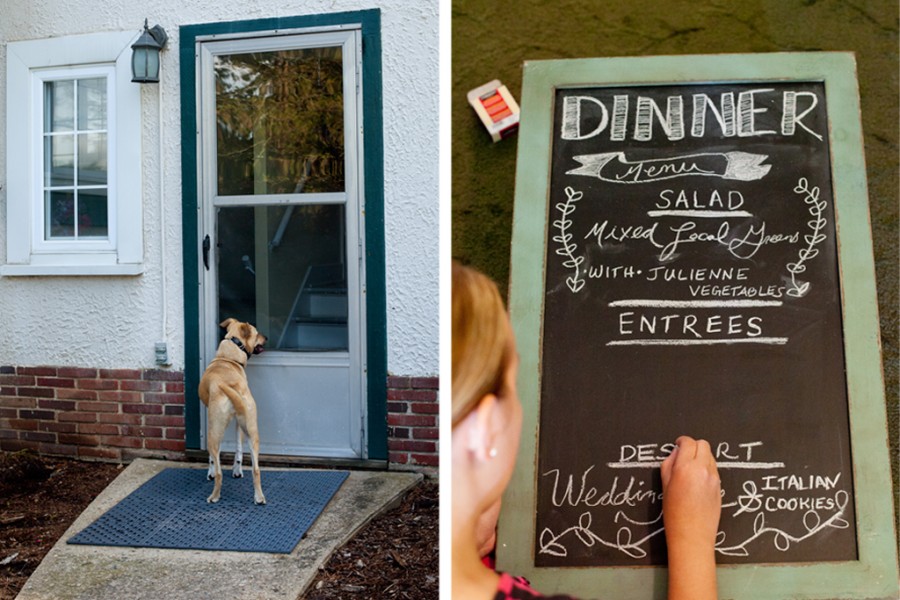 DINNER
Menu
SALAD
Mixed Local Greens
·WITH· JULIENNE
VEGETABLES
ENTREES
DESSERT
Wedding & ITALIAN
COOKIES